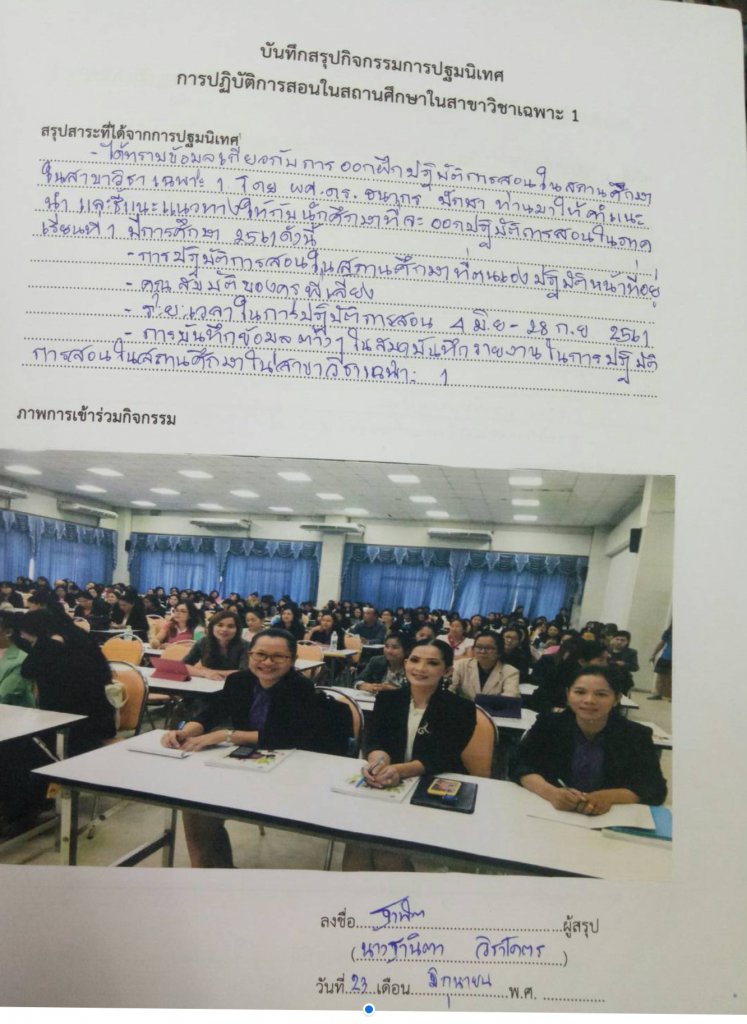 บันทึกสรุปกิจกรรมการปฐมนิเทศ
การปฏิบัติการสอนในสถานศึกษาในสาขาวิชาเฉพาะ 1
สรุปสาระที่ได้จากการปฐมนิเทศ
- ได้ทราบข้อมูลเกี่ยวกับการ ออกฝึกปฏิบัติการสอนในสถานศึกษา
ในสาขาวิชาเฉพาะ 1 โดย ผศ.ดร. ธนากร ท่านมาให้คำแนะ
นำ และชี้แนะแนวทางให้กับนักศึกษาที่จะ ออกปฏิบัติการสอนในภาค
เรียนที่ 1 ปีการศึกษา 2561 ดังนี้
- การปฏิบัติการสอนในสถานศึกษาที่ตนเองปฏิบัติหน้าที่อยู่
- คุณสมบัติของครูพี่เลี้ยง
- ระยะเวลาในการปฏิบัติการสอน 4 มิ.ย - 28 ก.ย 2561
- การบันทึกข้อมูลต่างๆ ในสมุดบันทึกรายงานในการปฏิบัติ
การสอนในสถานศึกษาในสาขาวิชาเฉพาะ 1
ภาพการเข้าร่วมกิจกรรม
ลงชื่อ ฐานิตา ผู้สรุป
(นางฐานิตา วิราโคตร)
วันที่ 23 เดือน มิถุนายน พ.ศ.